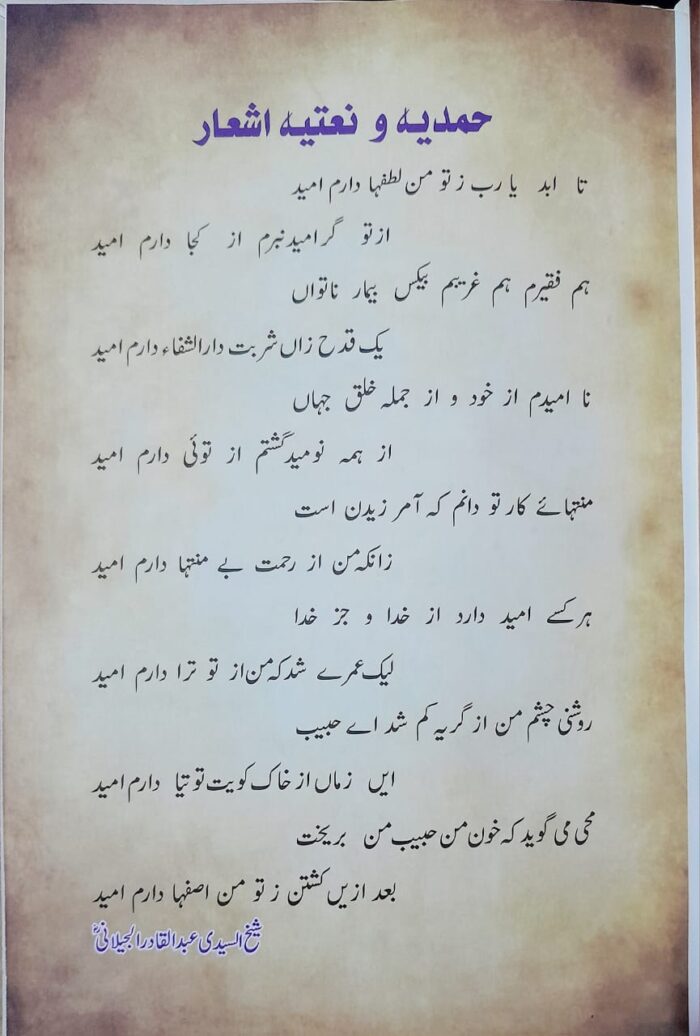 حمدیہ و نعتیہ اشعار
تا ابد یا رب ز تو من لطفہا دارم امید
از تو گر امید نبرم از کجا دارم امید
ہم فقیرم ہم غریبم بیکس بیمار ناتواں
یک قدح زاں شربت دارالشفاء دارم امید
نا امیدم از خود و از جملہ خلق جہاں
از ہمہ نومید گشتم از توئی دارم امید
منتہائے کار تو دانم کہ آمر زیدن است
زانکہ من از رحمت بے منتہا دارم امید
ہر کسے امید دارد از خدا و جز خدا
لیک عمرے شد کہ من از تو ترا دارم امید
روشنی چشم من از گریہ کم شد اے حبیب
ایں زماں از خاک کویت توتیا دارم امید
محی می گوید کہ خون من حبیب من بریخت
بعد ازیں کشتن ز تو من اصفہا دارم امید
شیخ السیدی عبدالقادر الجیلانیؒ